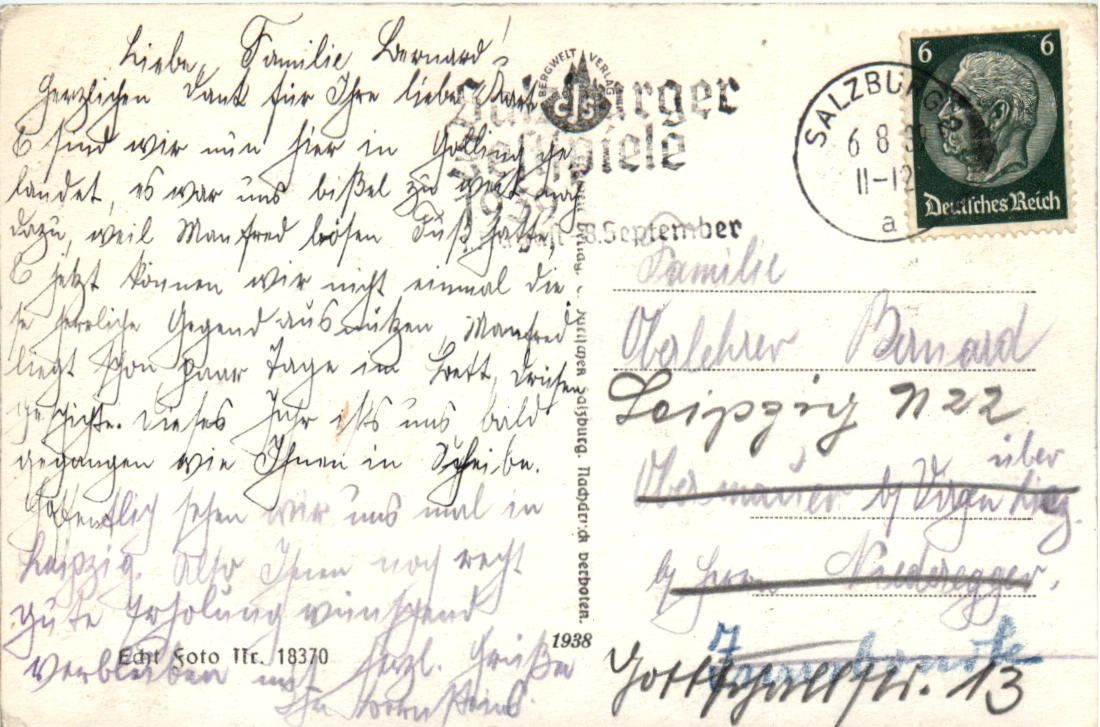 Liebe Familie Bernard!
Herzlichen Dank für Ihre liebe Karte
sind wir nun hier in Golling ge
landet, es war uns bißel zu weit nach
dazu, weil Manfred bösen Fuß hatte,
jetzt können wir nicht einmal die
se herrliche Gegend ausnützen, Manfred
liegt schon paar Tage im Bett, Drüsen
geschichte. Dieses Jahr ists uns bald
gegangen wie Ihnen in Scheibe.
Hoffentlich sehen wir uns mal in
Leipzig. Also Ihnen noch recht
gute Erholung wünschend
verbleiben mit herzl. Grüße
Ihr
Echt Foto Nr. 18370
1938
BERGWELT VERLAG
CJS
Salzburger
Festspiele
8. September
Salzburg. Nachdruck verboten.
SALZBURG
6 8 3
11-12
a
6 6
Deutsches Reich
Familie
Oberlehrer Bernard
Leipzig N 22
über
Obermauer b/ Virgen Linz.
b/ Herrn Niederegger.
Gottschallstr. 13